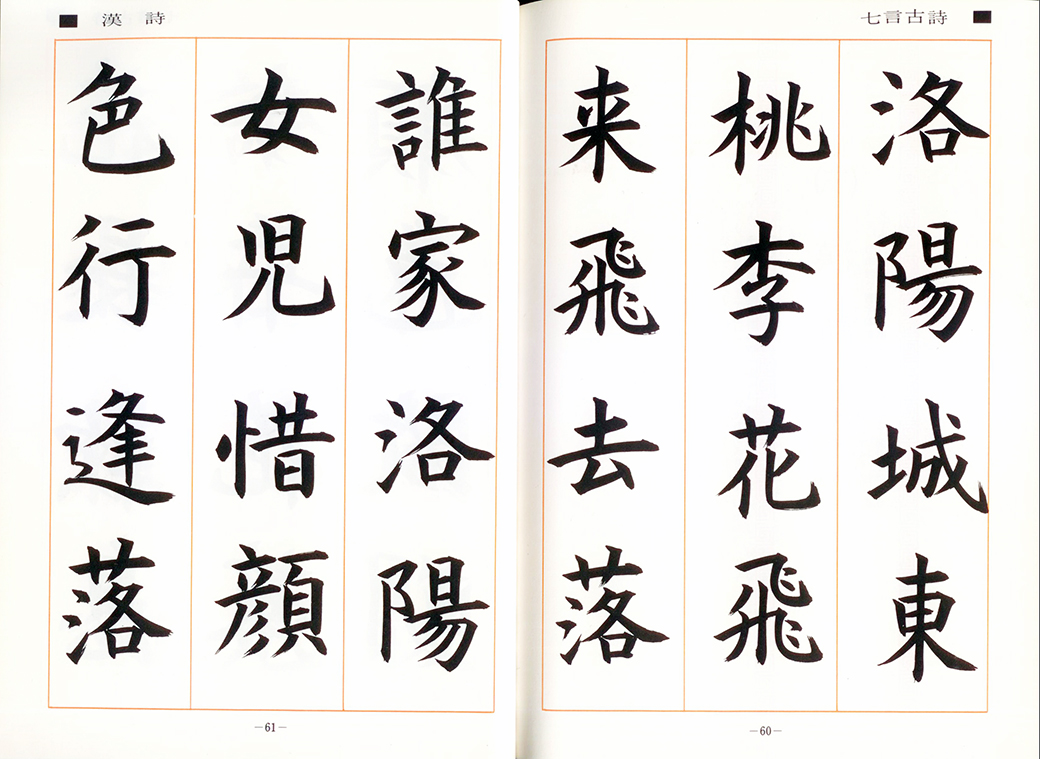 七言古詩
洛陽城東
桃李花飛
来飛去落
—60—
漢詩
誰家洛陽
女児惜顔
色行逢落
—61—